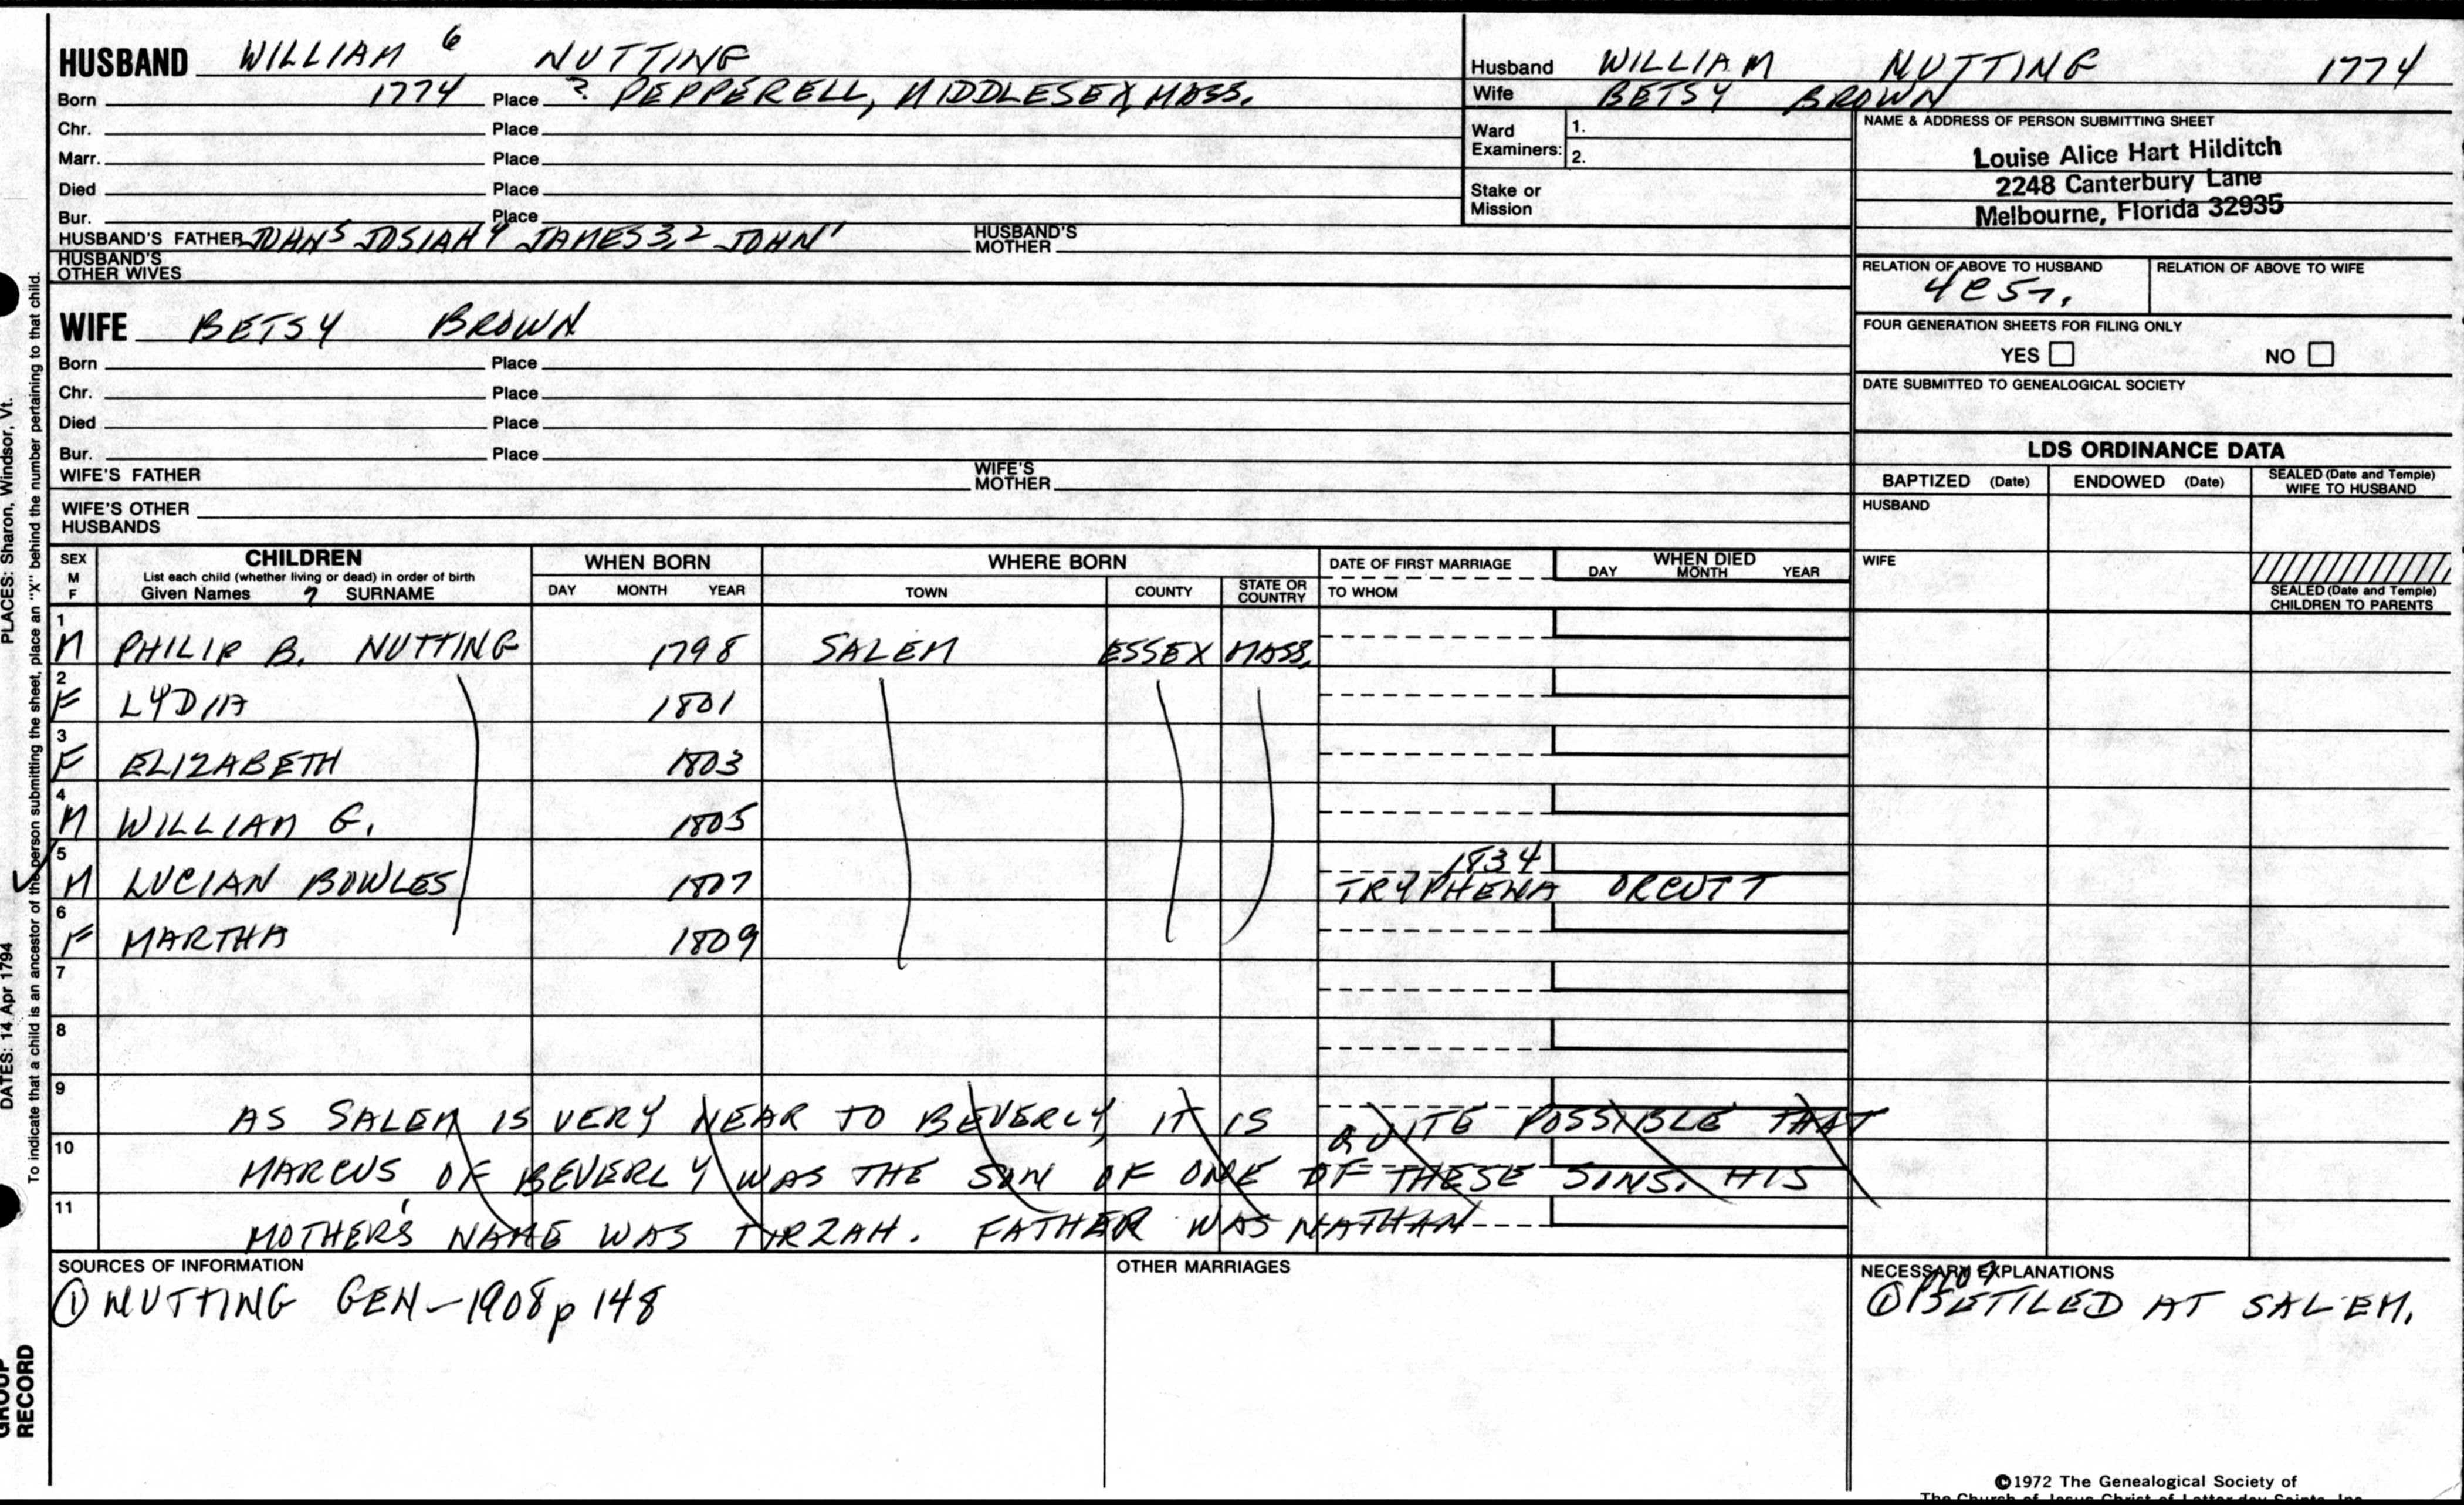 HUSBAND WILLIAM 6 NUTTING
Born 1774 Place ? PEPPERELL, MIDDLESEX MASS.
Chr. Place
Marr. Place
Died Place
Bur. Place
HUSBAND'S FATHER JOHN5 JOSIAH4 JAMES3,2 JOHN1 HUSBAND'S MOTHER
HUSBAND'S OTHER WIVES
WIFE BETSY BROWN
Born Place
Chr. Place
Died Place
Bur. Place
WIFE'S FATHER WIFE'S MOTHER
WIFE'S OTHER HUSBANDS
Husband WILLIAM NUTTING 1774
Wife BETSY BROWN
Ward Examiners: 1.
2.
Stake or Mission
NAME & ADDRESS OF PERSON SUBMITTING SHEET
Louise Alice Hart Hilditch
2248 Canterbury Lane
Melbourne, Florida 32935
RELATION OF ABOVE TO HUSBAND RELATION OF ABOVE TO WIFE
FOUR GENERATION SHEETS FOR FILING ONLY
YES NO
DATE SUBMITTED TO GENEALOGICAL SOCIETY
LDS ORDINANCE DATA
BAPTIZED (Date) ENDOWED (Date) SEALED (Date and Temple) WIFE TO HUSBAND
HUSBAND
WIFE
SEALED (Date and Temple) CHILDREN TO PARENTS
SEX M F CHILDREN WHEN BORN WHERE BORN DATE OF FIRST MARRIAGE WHEN DIED
List each child (whether living or dead) in order of birth
Given Names 7 SURNAME DAY MONTH YEAR TOWN COUNTY STATE OR COUNTRY TO WHOM DAY MONTH YEAR
1 M PHILIP B. NUTTING 1798 SALEM ESSEX MASS.
2 F LYDIA 1801
3 F ELIZABETH 1803
4 M WILLIAM G. 1805
5 M LUCIAN BOWLES 1807 1834 TRYPHENA ORCUTT
6 F MARTHA 1809
7
8
9 AS SALEM IS VERY NEAR TO BEVERLY IT IS QUITE POSSIBLE THAT
10 MARCUS OF BEVERLY WAS THE SON OF ONE OF THESE SONS. HIS
11 MOTHER'S NAME WAS TIRZAH. FATHER WAS NATHAN
SOURCES OF INFORMATION
① NUTTING GEN-1908 p 148
OTHER MARRIAGES
NECESSARY EXPLANATIONS
① SETTLED AT SALEM.
©1972 The Genealogical Society of
The Church of Jesus Christ of Latter-day Saints, Inc.
PLACES: Sharon, Windsor, Vt.
DATES: 14 Apr 1794
To indicate that a child is an ancestor of the person submitting the sheet, place an "X" behind the number pertaining to that child.
GROUP
RECORD